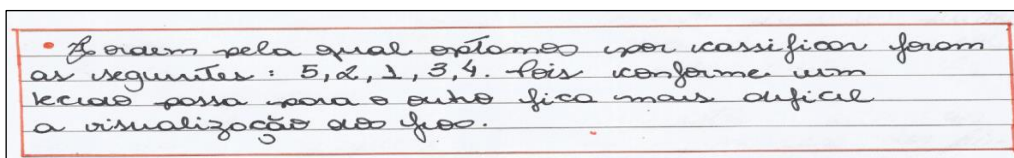 • A ordem pela qual optamos por cassificar foram
as seguintes: 5, 2, 1, 3, 4. Pois conforme um
tecido passa para o outro fica mais dificil
a visualização dos fios.